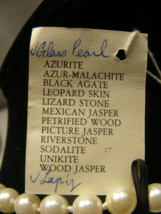 √Glass Pearl
AZURITE
AZUR-MALACHITE
BLACK AGATE
LEOPARD SKIN
LIZARD STONE
MEXICAN JASPER
PETRIFIED WOOD
PICTURE JASPER
RIVERSTONE
SODALITE
UNIKITE
WOOD JASPER
√Lapis